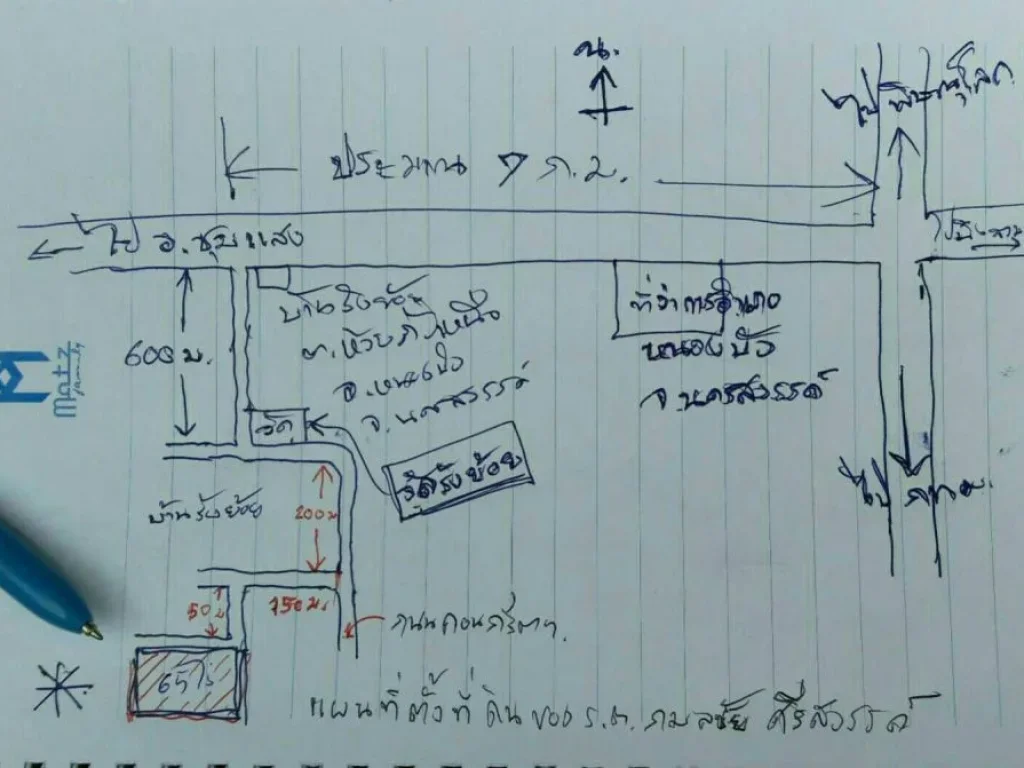 น.
ไปพิษณุโลก
ประมาณ 7 ก.ม.
ไป อ.ชุมแสง
บ้านรังย้อย
ต.ห้วยถั่วเหนือ
อ.หนองบัว
จ.นครสวรรค์
ที่ว่าการอำเภอ
หนองบัว
จ.นครสวรรค์
600 ม.
Matz
วัด
วัดรังย้อย
ไป กทม.
บ้านรังย้อย
200 ม
50 ม
150 ม.
ถนนคอนกรีต
65 ไร่
แผนที่ตั้งที่ดินของ ร.ต. กมลชัย ศรีสวรรค์